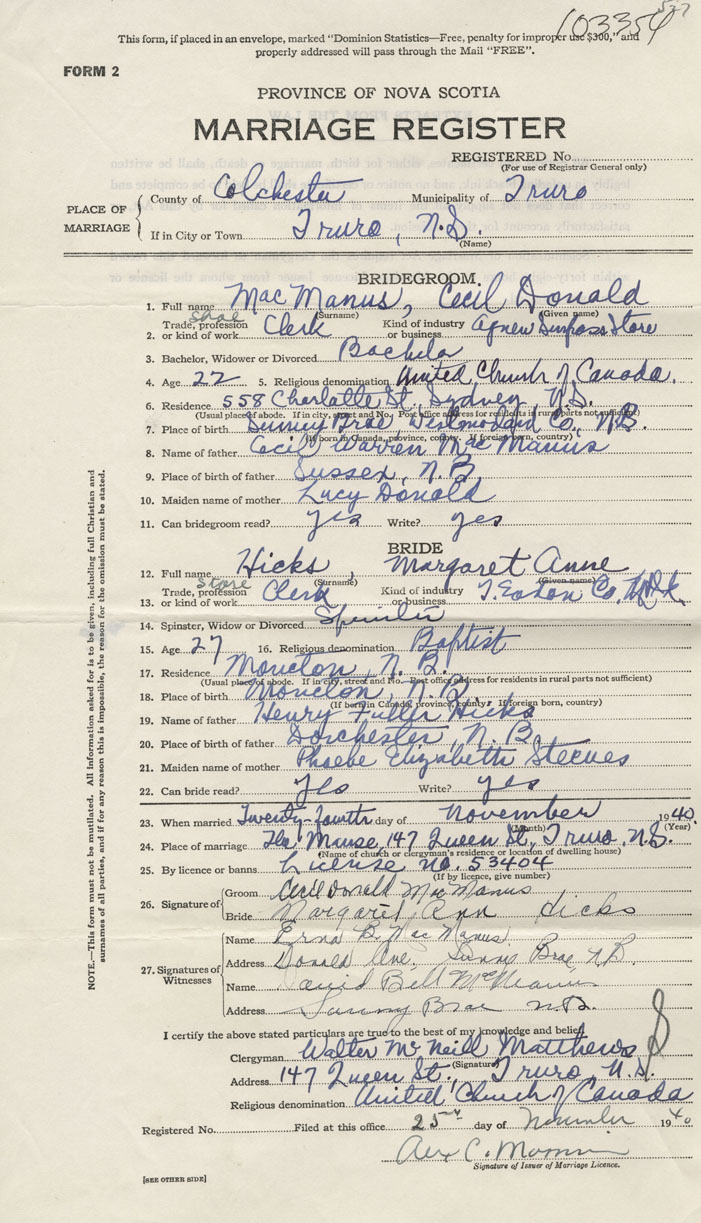 103354
This form, if placed in an envelope, marked "Dominion Statistics—Free, penalty for improper use $300," and
properly addressed will pass through the Mail "FREE".
FORM 2
PROVINCE OF NOVA SCOTIA
MARRIAGE REGISTER
REGISTERED No.
(For use of Registrar General only)
PLACE OF MARRIAGE
County of Colchester Municipality of Truro
If in City or Town Truro, N.S.
(Name)
BRIDEGROOM.
1. Full name MacManus, Cecil Donald
(Surname) (Given name)
2. Trade, profession or kind of work Shoe Clerk Kind of industry or business Agnew Surpass Store
3. Bachelor, Widower or Divorced Bachelor
4. Age 22 5. Religious denomination United Church of Canada.
6. Residence 558 Charlotte St., Sydney N.S.
(Usual place of abode. If in city, street and No. Post office address for residents in rural parts not sufficient)
7. Place of birth Sunny Brae, Westmorland Co., N.B.
(If born in Canada, province, county. If foreign born, country)
8. Name of father Cecil Warren MacManus
9. Place of birth of father Sussex, N.B
10. Maiden name of mother Lucy Donald
11. Can bridegroom read? yes Write? yes
BRIDE
12. Full name Hicks, Margaret Anne
(Surname) (Given name)
13. Trade, profession or kind of work Store Clerk Kind of industry or business T. Eaton Co.
14. Spinster, Widow or Divorced Spinster
15. Age 27 16. Religious denomination Baptist
17. Residence Moncton, N.B.
(Usual place of abode. If in city, street and No. Post office address for residents in rural parts not sufficient)
18. Place of birth Moncton, N.B.
(If born in Canada, province, county. If foreign born, country)
19. Name of father Henry Fuller Hicks
20. Place of birth of father Dorchester, N.B.
21. Maiden name of mother Phoebe Elizabeth Steeves
22. Can bride read? Yes Write? yes
23. When married Twenty-fourth day of November 1940
(Month) (Year)
24. Place of marriage The Manse, 147 Queen St., Truro, N.S.
(Name of church or clergyman's residence or location of dwelling house)
25. By licence or banns License no. 53404
(If by licence, give number)
26. Signature of
Groom Cecil Donald MacManus
Bride Margaret Ann Hicks
27. Signatures of Witnesses
Name Erna B. MacManus
Address Donald Ave., Sunny Brae, N.B.
Name David Bell McManus
Address Sunny Brae N.B.
I certify the above stated particulars are true to the best of my knowledge and belief.
Clergyman Walter McNeill Matthews
(Signature)
Address 147 Queen St., Truro, N.S.
Religious denomination United Church of Canada
Registered No. Filed at this office 25th day of November 1940
Signature of Issuer of Marriage Licence.
[SEE OTHER SIDE]
NOTE.—This form must not be mutilated. All Information asked for is to be given, including full Christian and
surnames of all parties, and if for any reason this is impossible, the reason for the omission must be stated.